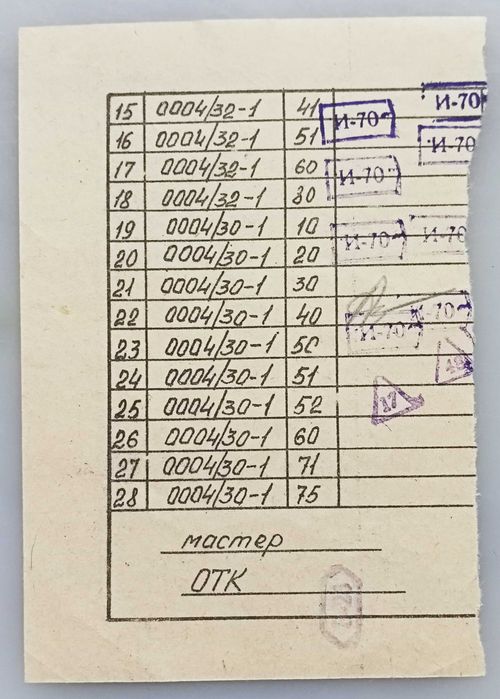 15 0004/32-1 41 И-70 И-70
16 0004/32-1 51 И-70
17 0004/32-1 60 И-70
18 0004/32-1 80
19 0004/30-1 10 И-70 И-70
20 0004/30-1 20
21 0004/30-1 30
22 0004/30-1 40 И-70 И-70
23 0004/30-1 50
24 0004/30-1 51
25 0004/30-1 52 17
26 0004/30-1 60
27 0004/30-1 71
28 0004/30-1 75
мастер
ОТК